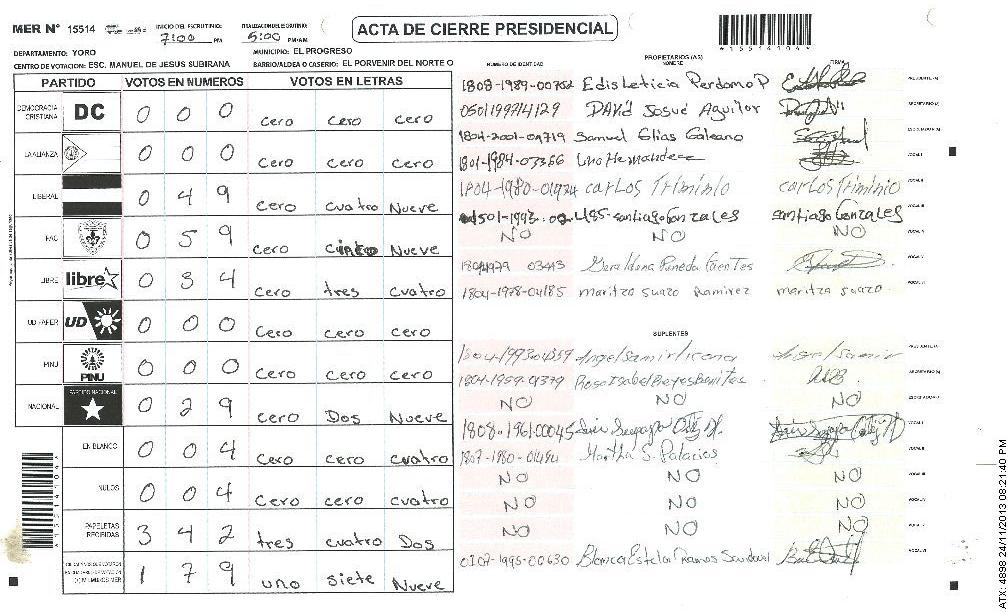 MER N° 15514 INICIO DEL ESCRUTINIO: 7:00 PM FINALIZACION ESCRUTINIO: 5:00 PM/AM
ACTA DE CIERRE PRESIDENCIAL
15514104
DEPARTAMENTO: YORO MUNICIPIO: EL PROGRESO
CENTRO DE VOTACION: ESC. MANUEL DE JESUS SUBIRANA BARRIO/ALDEA O CASERIO: EL PORVENIR DEL NORTE O
PARTIDO VOTOS EN NUMEROS VOTOS EN LETRAS
DEMOCRACIA CRISTIANA DC 0 0 0 cero cero cero
LA ALIANZA 0 0 0 cero cero cero
LIBERAL 0 4 9 cero cuatro Nueve
PAC 0 5 9 cero cinco Nueve
LIBRE libre 0 3 4 Cero tres cuatro
UD FAPER UD 0 0 0 Cero cero cero
PINU PINU 0 0 0 Cero cero cero
NACIONAL PARTIDO NACIONAL 0 2 9 Cero Dos Nueve
EN BLANCO 0 0 4 Cero cero cuatro
NULOS 0 0 4 cero cero cuatro
PAPELETAS RECIBIDAS 3 4 2 tres cuatro Dos
1 7 9 uno siete Nueve
PROPIETARIOS (AS)
NUMERO DE IDENTIDAD NOMBRE FIRMA
1808-1989-00762 Edis Leticia Perdomo P PRESIDENTE (A)
DAvid Josué Aguilar SECRETARIO (A)
1804-2001-04719 Samuel Elias Galeano ESCRUTADOR (A)
1801-1984-03366 VOCAL I
carlos Triminio carlos Triminio VOCAL II
santiago Gonzales santiago Gonzales VOCAL III
NO NO NO
03443 Pineda Fuentes VOCAL V
1804-1978-04185 maritza suazo Ramirez maritza suazo VOCAL VI
SUPLENTES
PRESIDENTE (A)
1804-1959-01379 Rosa Isabel Reyes Benites SECRETARIO (A)
NO NO NO ESCRUTADOR (A)
1808-1961-00045 VOCAL I
1807-1980-01484 Martha S. Palacios VOCAL II
NO NO NO VOCAL III
NO NO NO VOCAL IV
NO NO NO VOCAL V
0107-1995-00630 Blanca Estela Ramos Sandoval VOCAL VI
ATX: 4898 24/11/2013 08:21:40 PM